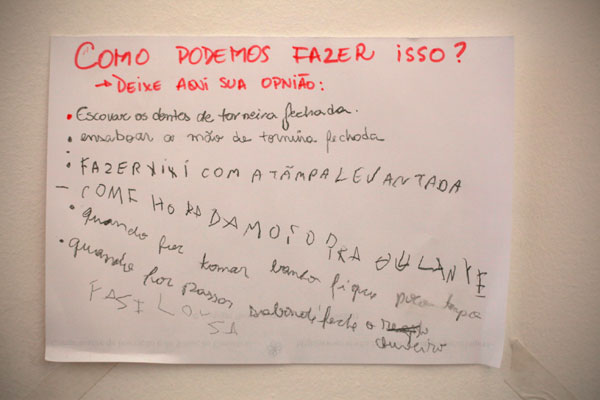 COMO PODEMOS FAZER ISSO?
→ DEIXE AQUI SUA OPNIÃO:
• Escovar os dentes de torneira fechada.
• ensaboar a mão de torneira fechada
• FAZER XIXÍ COM A TÂMPA LEVANTADA
– COME HORA DA
• quando for tomar banho fique pouco tempo
• quando for passar sabonete feche o
chuveiro
FASI LOU
SA